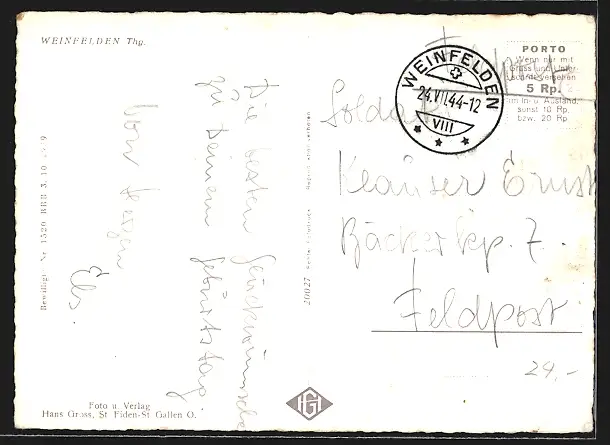 WEINFELDEN Thg.
Die besten Glückwünsche
zu Deinem Geburtstag
von
Els.
Bewilligt Nr 1520 BRB 3. 10
20027
Foto u. Verlag
Hans Gross, St Fiden-St Gallen O.
HG
WEINFELDEN
24.VII.44-12
VIII
PORTO
Wenn nur mit
Gruss und Unter-
schrift versehen
5 Rp.
im In- u. Ausland,
sonst 10 Rp.
bzw. 20 Rp.
Soldat
Klauser Ernst
Bäckerkp. 7.
Feldpost
24,-